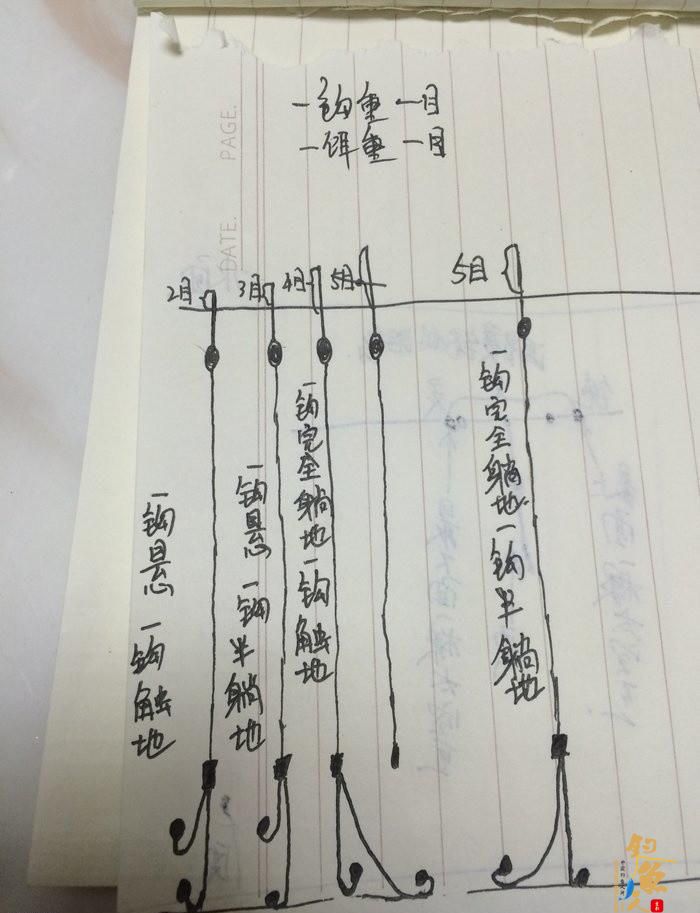 PAGE.
DATE.
一钩重一目
一饵重一目
2目
3目
4目
5目
5目
一钩悬一钩触地
一钩悬一钩半躺地
一钩完全躺地一钩触地
一钩完全躺地一钩半躺地
钓鱼人